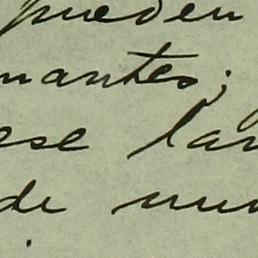 pueden
mantes;
ese lan
de nun